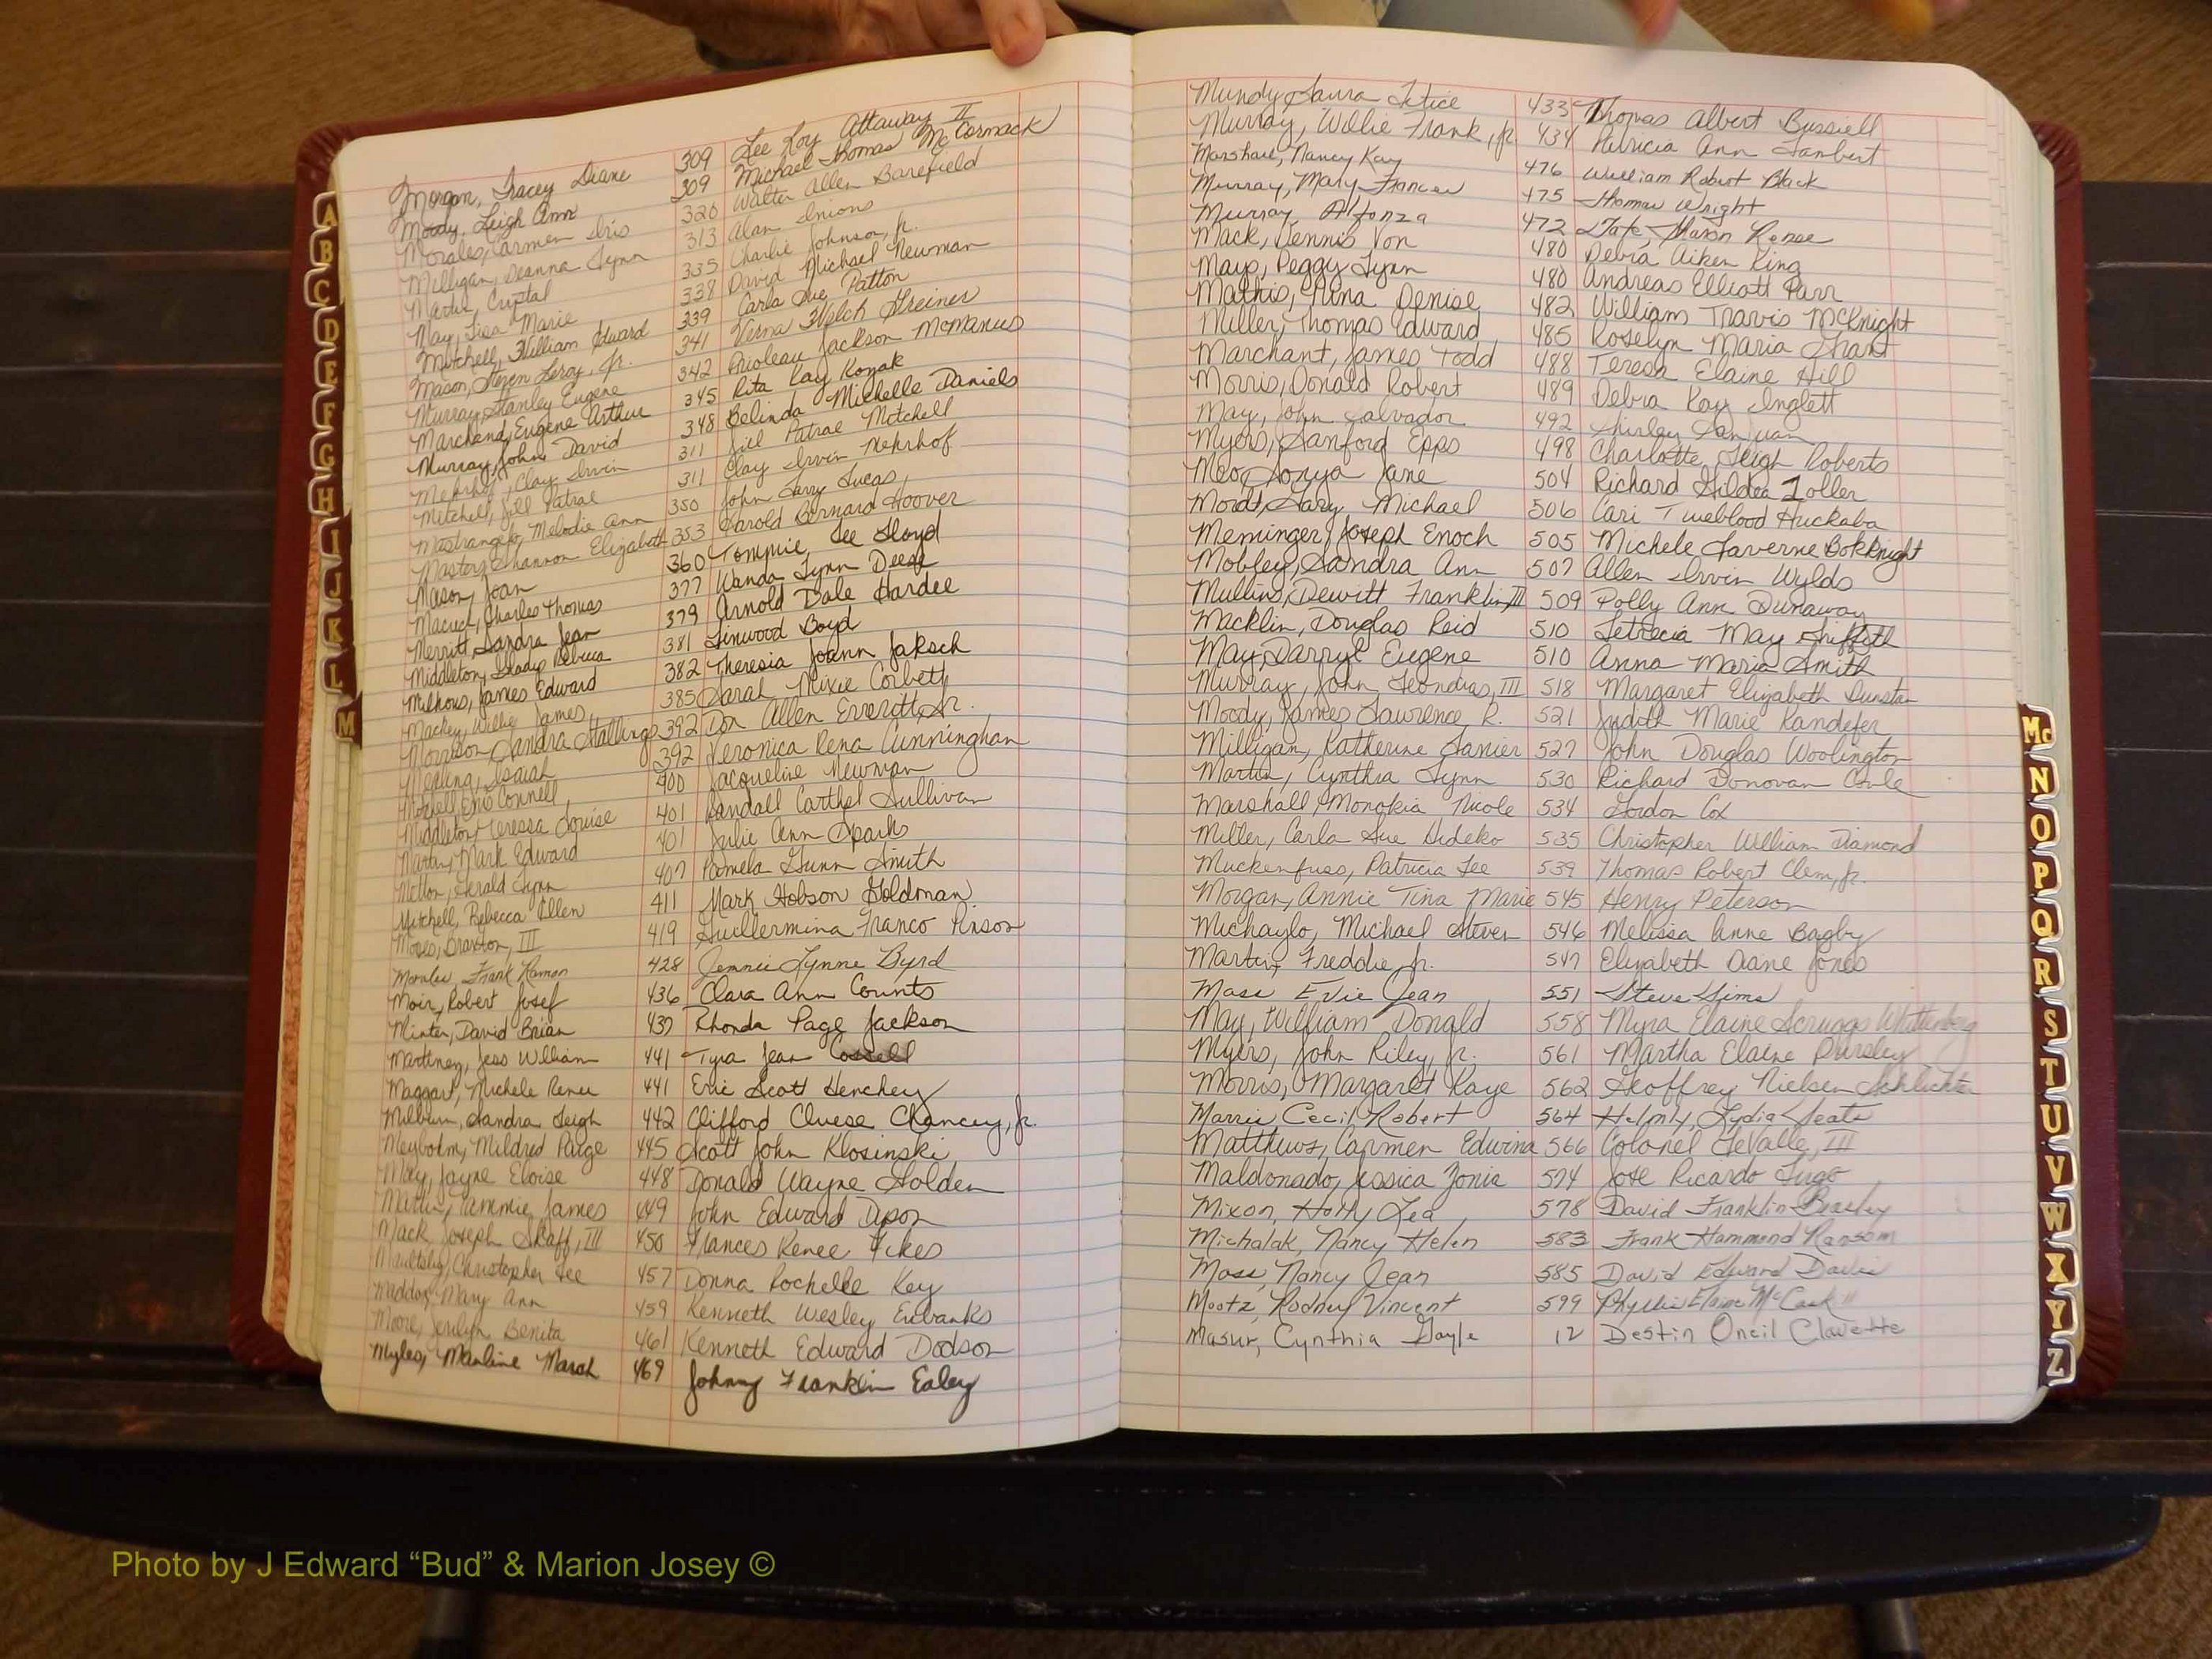 Morgan, Tracey Diane 309 Lee Roy Attaway II
Moody, Leigh Ann 309 Michael Thomas McCormack
Morales, Carmen Iris 320 Walter Allen Barefield
Milligan, Deanna Lynn 313 Alan Inions
Martin, Crystal 335 Charlie Johnson, Jr.
May, Lisa Marie 338 David Michael Newman
Mitchell, William Edward 339 Carla Sue Patton
Mason, Steven Leroy, Jr. 341 Verna Welch Greiner
Murray, Stanley Eugene 342 Prioleau Jackson McManus
Marchand, Eugene Arthur 345 Rita Kay Kozak
Murray, John David 348 Belinda Michelle Daniels
Mehrhof, Clay Irvin 311 Jill Patrae Mitchell
Mitchell, Jill Patrae 311 Clay Irvin Mehrhof
Mastrangelo, Melodie Ann 350 John Larry Lucas
Masters, Shannon Elizabeth 353 Harold Bernard Hoover
Mason, Joan 360 Tommie Lee Lloyd
Charles Thomas 377 Wanda Lynn Deese
Merritt, Sandra Jean 379 Arnold Dale Hardee
Middleton, Gladys Rebecca 381 Linwood Boyd
Milhous, James Edward 382 Theresia Joann Jaksch
Mackey, Willie James 385 Sarah Mixie Corbett
Morrison, Sandra Stallings 392 Don Allen Everitt, Sr.
Isaiah 392 Veronica Rena Cunningham
Eric Connell 400 Jacqueline Newman
Middleton, Teressa Louise 401 Randall Carthel Sullivan
Martin, Mark Edward 401 Julie Ann Sparks
Melton, Gerald Lynn 407 Pamela Gunn Smith
Mitchell, Rebecca Ellen 411 Mark Hobson Goldman
Moses, Braxton, III 419 Guillermina Franco Pinson
Morales, Frank Ramon 428 Jennie Lynne Byrd
Moir, Robert Josef 436 Clara Ann Counts
Minter, David Brian 437 Rhonda Page Jackson
Martiney, Jess William 441 Tyra Jean Cossell
Maggart, Michele Renee 441 Eric Scott Henchey
Milburn, Sandra Leigh 442 Clifford Cluese Chancey, Jr.
Meybohm, Mildred Paige 445 Scott John Klosinski
May, Jayne Eloise 448 Donald Wayne Holden
Martin, Tammie James 449 John Edward Dixon
Mack, Joseph Skaff, III 450 Frances Renee Fikes
Christopher Lee 457 Donna Rochelle Key
Maddox, Mary Ann 459 Kenneth Wesley Eubanks
Moore, Jerilyn Benita 461 Kenneth Edward Dodson
Myles, Marline Marsh 469 Johnny Franklin Ealey
A
B
C
D
E
F
G
H
I
J
K
L
M
Mundy, Laura Letice 433 Thomas Albert Bussiell
Murray, Willie Frank, Jr. 434 Patricia Ann Lambert
Marshall, Nancy Kay 476 William Robert Black
Murray, Mary Frances 475 Thomas Wright
Murray, Alfonza 472 Tate, Sharon Renee
Mack, Dennis Von 480 Debra Aiken King
Mays, Peggy Lynn 480 Andreas Elliott Parr
Mathis, Nina Denise 482 William Travis McKnight
Miller, Thomas Edward 485 Roselyn Maria Grant
Marchant, James Todd 488 Teresa Elaine Hill
Morris, Donald Robert 489 Debra Kay Inglett
May, John Salvador 492 Shirley San Juan
Myers, Sanford Epps 498 Charlotte Leigh Roberts
Sonya Jane 504 Richard Gildea Zoller
Gary Michael 506 Cari Trueblood Huckaba
Meminger, Joseph Enoch 505 Michele Laverne Boknight
Mobley, Sandra Ann 507 Allen Irvin Wylds
Mullins, Dewitt Franklin, III 509 Polly Ann Dunaway
Macklin, Douglas Reid 510 Letrecia May Griffith
May, Darryl Eugene 510 Anna Maria Smith
Murray, John Leondras, III 518 Margaret Elizabeth Dunston
Moody, James Lawrence R. 521 Judith Marie Kandefer
Milligan, Katherine Lanier 527 John Douglas Woolington
Martin, Cynthia Lynn 530 Richard Donovan
Marshall, Monokia Nicole 534 Gordon Cox
Miller, Carla Sue Hideko 535 Christopher William Diamond
Muckenfuss, Patricia Lee 539 Thomas Robert Clem, Jr.
Morgan, Annie Tina Marie 545 Henry Peterson
Michaylo, Michael Steven 546 Melissa Anne Bagby
Martin, Freddie, Jr. 547 Elizabeth Diane Jones
Moss Evie Jean 551 Steve Sims
May, William Donald 558 Myra Elaine Scruggs Whittenberg
Myers, John Riley, Jr. 561 Martha Elaine Pursley
Morris, Margaret Kaye 562 Geoffrey Nielsen Schlichter
Morris Cecil Robert 564 Helmly, Lydia Seats
Matthews, Carmen Edwina 566 Colonel LeValle, III
Maldonado, Jessica Zonia 574 Jose Ricardo Lugo
Mixon, Holly Lea 578 David Franklin Beasley
Michalak, Nancy Helen 583 Frank Hammond Ransom
Moss, Nancy Jean 585 David Edward Davis
Mootz, Rodney Vincent 599 Phyllis Elaine McCaskill
Masur, Cynthia Gayle 12 Destin Oneil Clavette
Mc
N
O
P
Q
R
S
T
U
V
W
X
Y
Z
Photo by J Edward “Bud” & Marion Josey ©